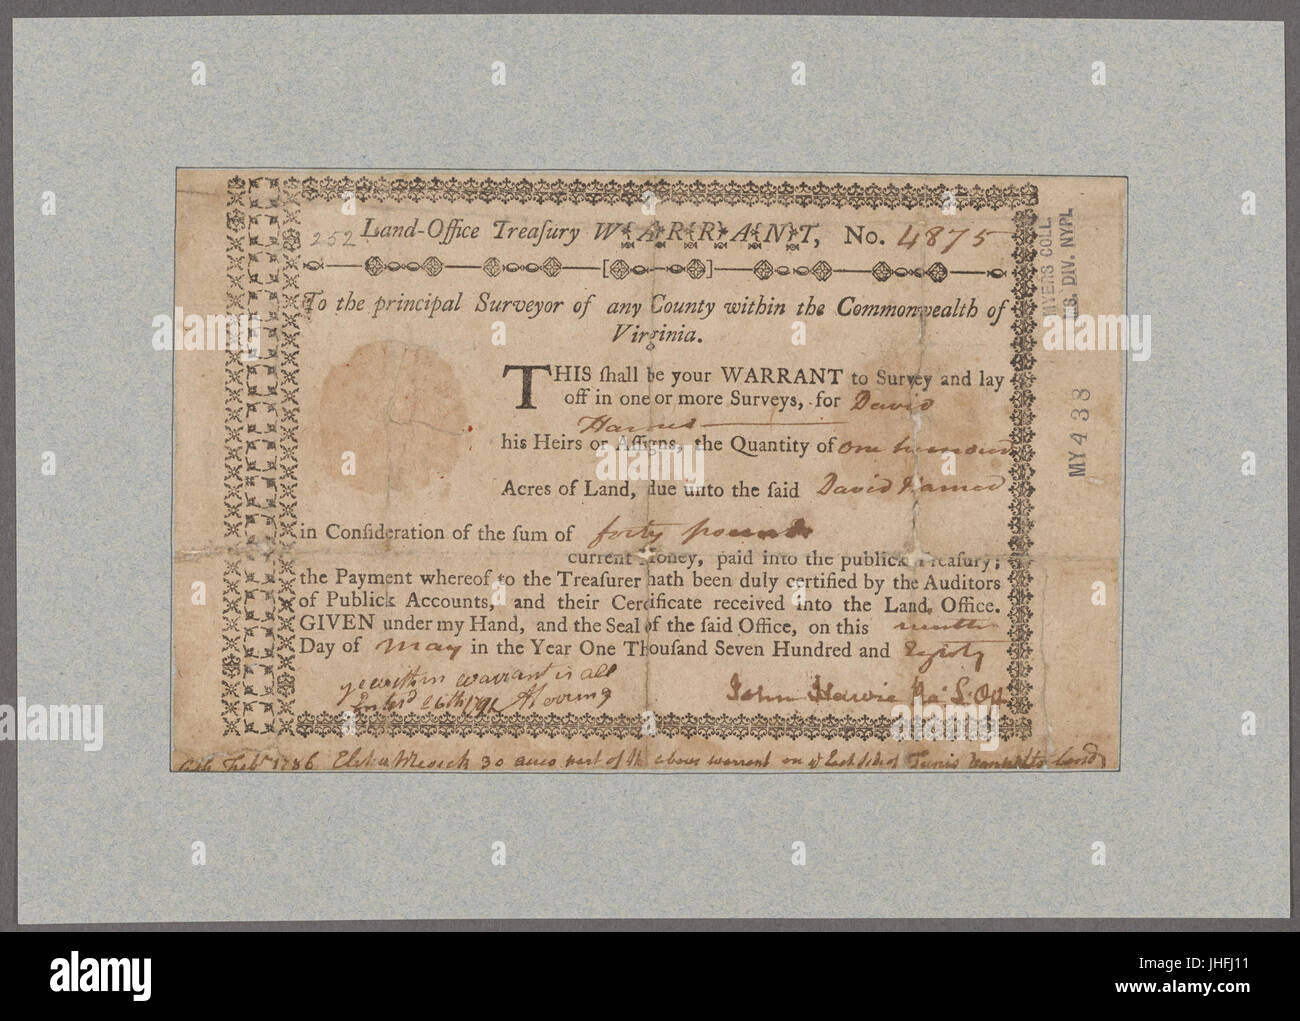 252 Land-Office Treaſury WARRANT, No. 4875
To the principal Surveyor of any County within the Commonwealth of
Virginia.
THIS ſhall be your WARRANT to Survey and lay
off in one or more Surveys, for David
his Heirs or Aſſigns, the Quantity of one hundred
Acres of Land, due unto the ſaid David
in Conſideration of the ſum of forty pounds
current Money, paid into the publick Treaſury;
the Payment whereof to the Treaſurer hath been duly certified by the Auditors
of Publick Accounts, and their Certificate received into the Land Office.
GIVEN under my Hand, and the Seal of the ſaid Office, on this
Day of May in the Year One Thouſand Seven Hundred and Eighty
within warrant is all
John Harvie
Feb. 1786 30 acres part of the above warrant on Eaſt ſide of land
MYERS COLL.
MS. DIV. NYPL
MY 438
a alamy
alamy
Image ID: JHFJ11
www.alamy.com